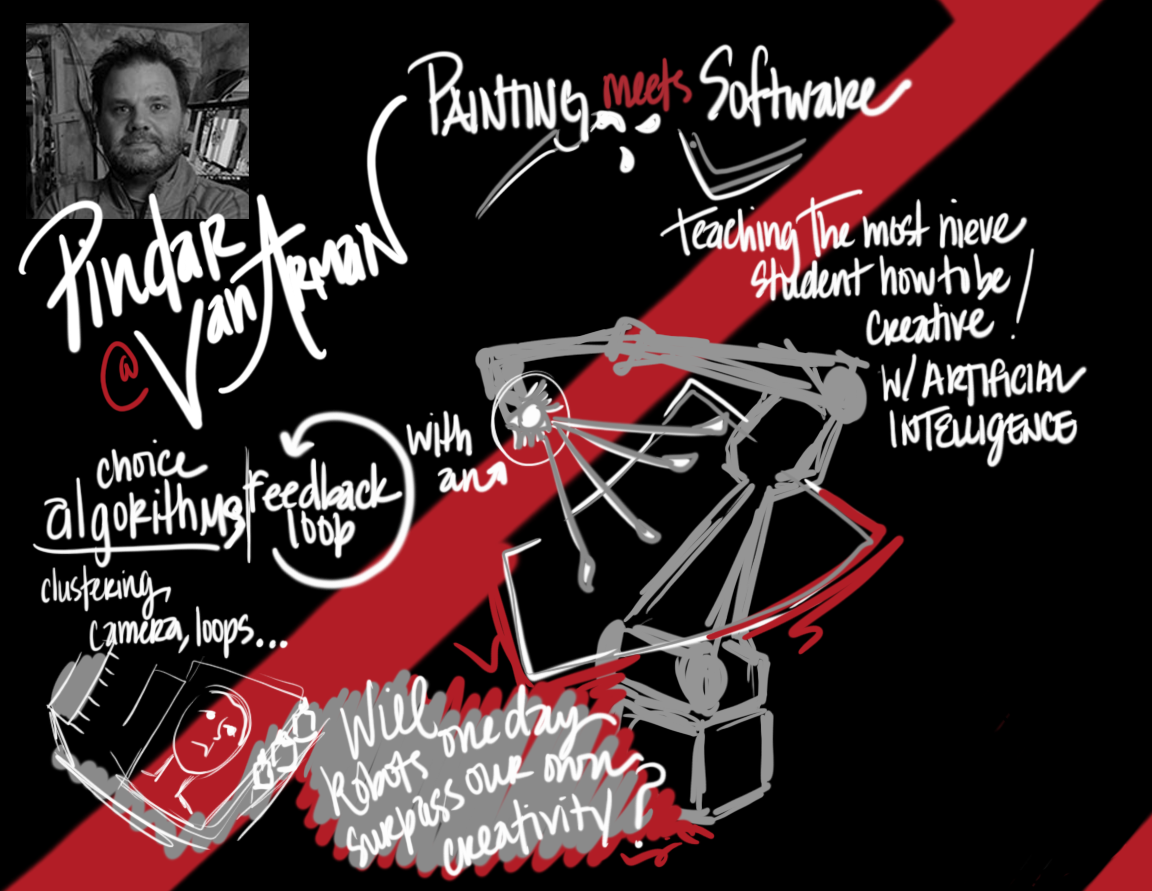 Painting meets Software
Pindar
@ Van Arman
teaching the most nieve
student how to be
creative!
w/ Artificial
Intelligence
choice
algorithms
feedback
loop
with
an
clustering,
camera, loops...
Will one day
Robots
surpass our own
creativity?